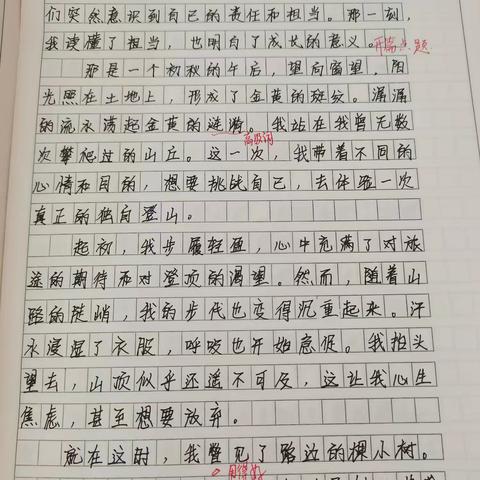 们突然意识到自己的责任和担当。那一刻，
我读懂了担当，也明白了成长的意义。开篇点题
那是一个初秋的午后，望向窗望，阳
光照在土地上，形成了金黄的斑纹。潺潺
的流水荡起金黄的涟漪。我站在我曾无数
高级词
次攀爬过的山丘。这一次，我带着不同的
心情和目的，想要挑战自己，去体验一次
真正的独自登山。
起初，我步履轻盈，心中充满了对旅
途的期待和对登顶的渴望。然而，随着山
路的陡峭，我的步伐也变得沉重起来。汗
水浸湿了衣服，呼吸也开始急促。我抬头
望去，山顶似乎还遥不可及，这让我心生
焦虑，甚至想要放弃。
就在这时，我瞥见了路边的棵小树。